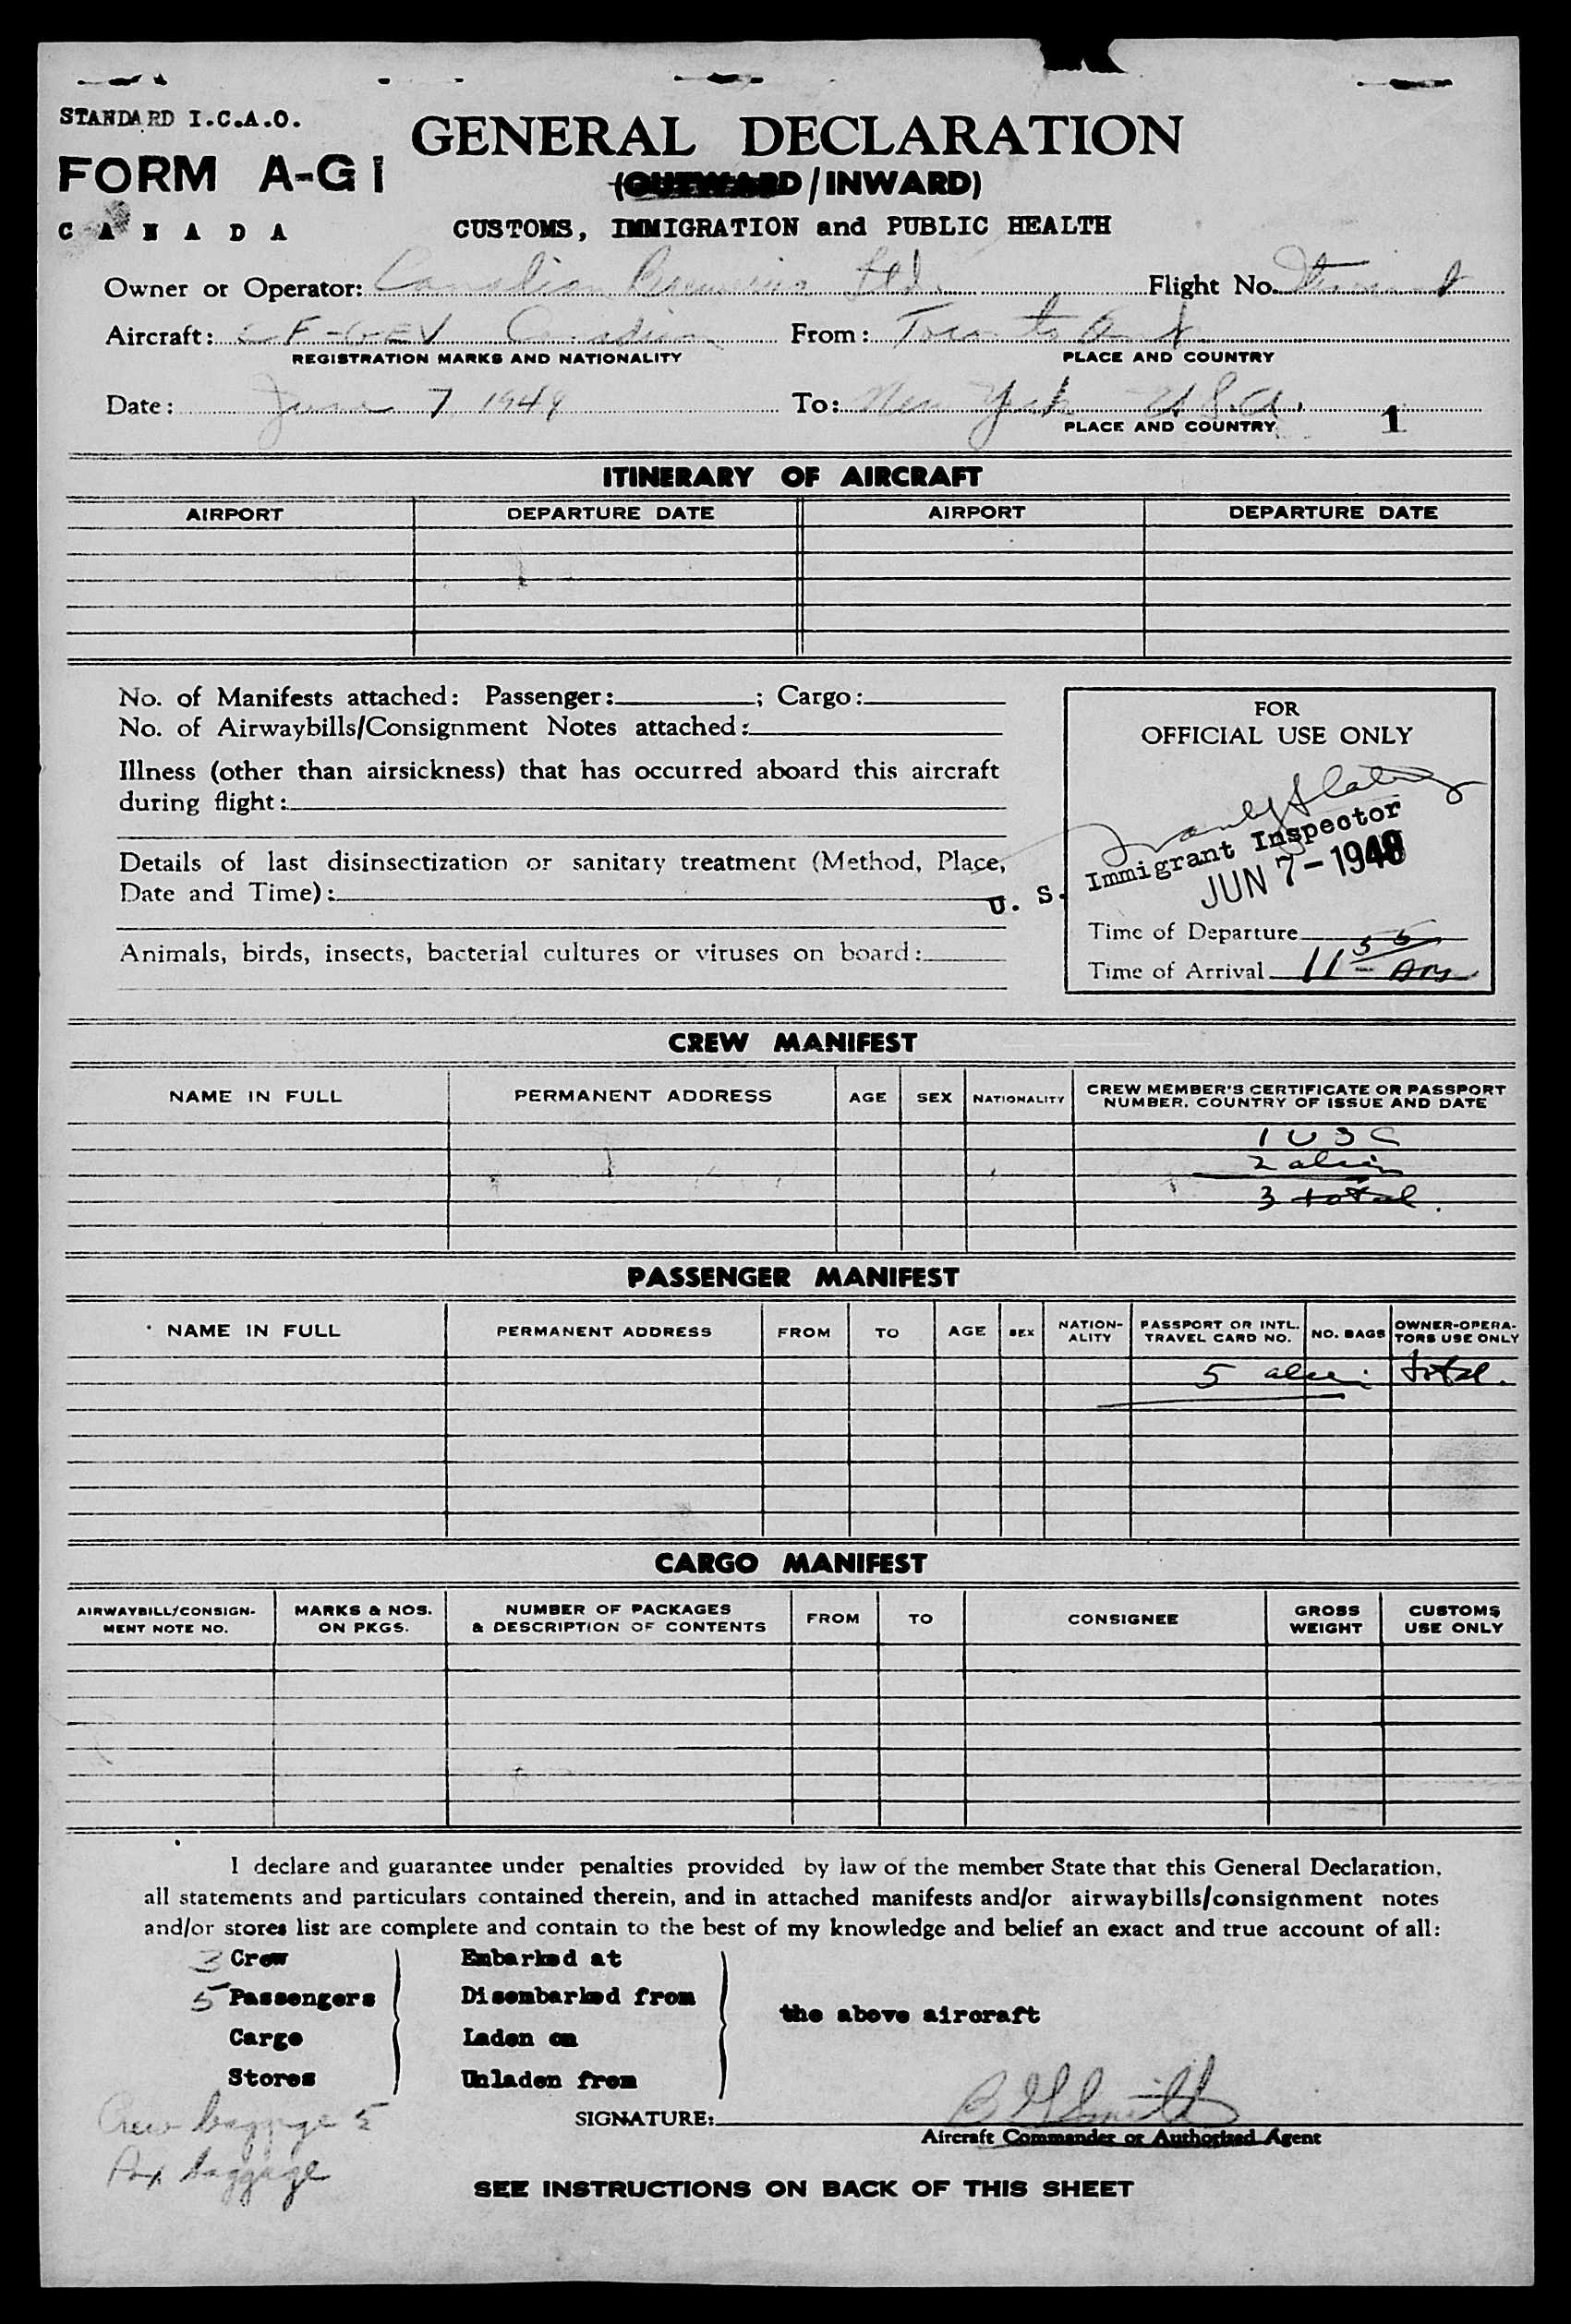 STANDARD I.C.A.O.
GENERAL DECLARATION
FORM A-G1
(OUTWARD/INWARD)
CANADA
CUSTOMS, IMMIGRATION and PUBLIC HEALTH
Owner or Operator: Canadian Breweries Ltd. Flight No.
Aircraft: CF-GEV Canadian From: Toronto Ont
REGISTRATION MARKS AND NATIONALITY PLACE AND COUNTRY
Date: June 7 1949 To: New York U.S.A.
PLACE AND COUNTRY 1
ITINERARY OF AIRCRAFT
AIRPORT DEPARTURE DATE AIRPORT DEPARTURE DATE
No. of Manifests attached: Passenger: ; Cargo:
No. of Airwaybills/Consignment Notes attached:
Illness (other than airsickness) that has occurred aboard this aircraft
during flight:
Details of last disinsectization or sanitary treatment (Method, Place,
Date and Time):
Animals, birds, insects, bacterial cultures or viruses on board:
FOR
OFFICIAL USE ONLY
U. S. Immigrant Inspector
JUN 7-1948
Time of Departure
Time of Arrival 11 55 Am
CREW MANIFEST
NAME IN FULL PERMANENT ADDRESS AGE SEX NATIONALITY CREW MEMBER'S CERTIFICATE OR PASSPORT
NUMBER, COUNTRY OF ISSUE AND DATE
1 USC
2 alien
3 total.
PASSENGER MANIFEST
NAME IN FULL PERMANENT ADDRESS FROM TO AGE SEX NATION-
ALITY PASSPORT OR INTL.
TRAVEL CARD NO. NO. BAGS OWNER-OPERA-
TORS USE ONLY
5 alien total.
CARGO MANIFEST
AIRWAYBILL/CONSIGN-
MENT NOTE NO. MARKS & NOS.
ON PKGS. NUMBER OF PACKAGES
& DESCRIPTION OF CONTENTS FROM TO CONSIGNEE GROSS
WEIGHT CUSTOMS
USE ONLY
I declare and guarantee under penalties provided by law of the member State that this General Declaration,
all statements and particulars contained therein, and in attached manifests and/or airwaybills/consignment notes
and/or stores list are complete and contain to the best of my knowledge and belief an exact and true account of all:
3 Crew Embarked at
5 Passengers Disembarked from
the above aircraft
Cargo Laden on
Stores Unladen from
Crew baggage 5
SIGNATURE: B G Smith
Aircraft Commander or Authorized Agent
Pax baggage
SEE INSTRUCTIONS ON BACK OF THIS SHEET